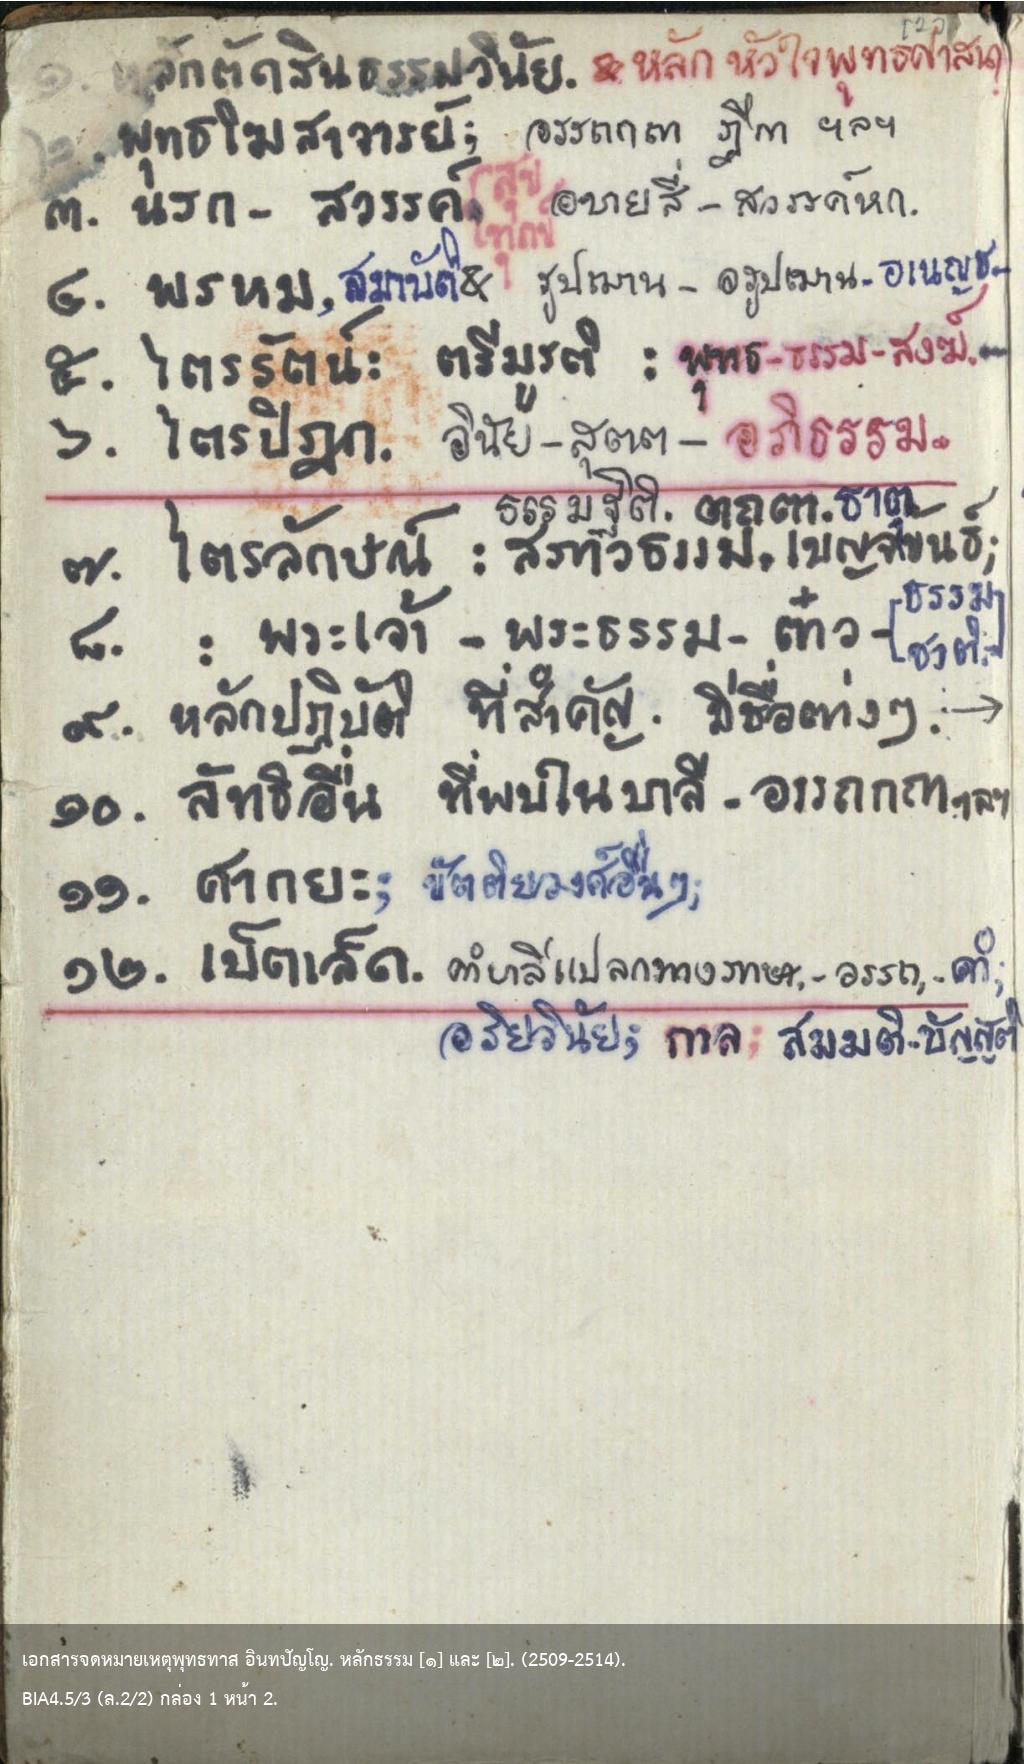 ๑. หลักตัดสินธรรมวินัย. & หลักหัวใจพุทธศาสนา
๒. พุทธโฆสาจารย์; อรรถกถา ฎีกา ฯลฯ
๓. นรก - สวรรค์, สุข ทุกข์ อบายสี่ - สวรรค์หก.
๔. พรหม, สมาบัติ & รูปฌาน - อรูปฌาน - อเนญช -
๕. ไตรรัตน์: ตรีมูรติ : พุทธ - ธรรม - สงฆ์.
๖. ไตรปิฎก. วินัย - สุตต - อภิธรรม.
ธรรมฐิติ. ตถตา. ธาตุ
๗. ไตรลักษณ์ : สรทัวธรรม. เบญจขันธ์;
๘. : พระเจ้า - พระธรรม - เต๋า - [ธรรม
ชาติ.]
๙. หลักปฏิบัติ ที่สำคัญ. มีชื่อต่างๆ. →
๑๐. ลัทธิอื่น ที่พบในบาลี - อรรถกถา ฯลฯ
๑๑. ศากยะ; ขัตติยวงศ์อื่นๆ;
๑๒. เบ็ตเล็ด. คำบาลีแปลกทางภาษา, - อรรถ, - คำ;
อริยวินัย; กาล; สมมติ - บัญญัติ
เอกสารจดหมายเหตุพุทธทาส อินทปัญโญ. หลักธรรม [๑] และ [๒]. (2509-2514).
BIA4.5/3 (ล.2/2) กล่อง 1 หน้า 2.